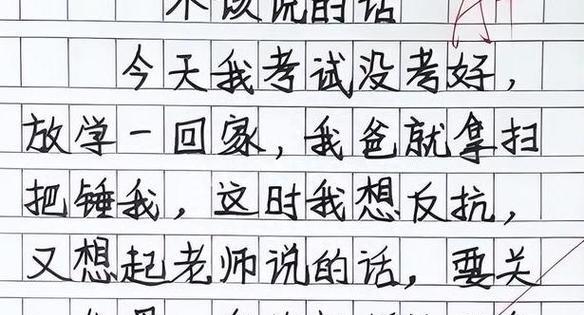 不该说的话
今天我考试没考好，
放学一回家，我爸就拿扫
把锤我，这时我想反抗，
又想起老师说的话，要关